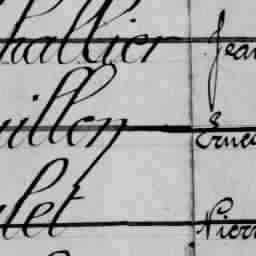 hallier Jean
uillen Ernes
let Pierr